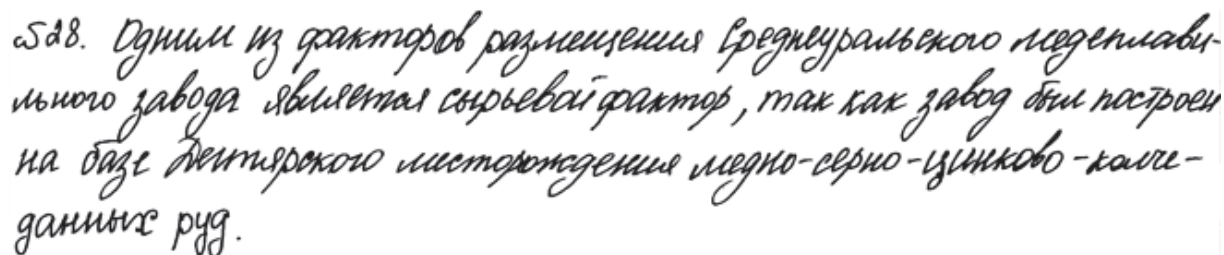 №28. Одним из факторов размещения Среднеуральского медеплави-
льного завода является сырьевой фактор, так как завод был построен
на базе Дегтярского месторождения медно-серно-цинково-колче-
данных руд.